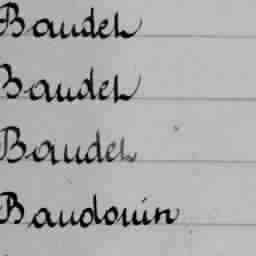 Baudet
Baudet
Baudet
Baudouin